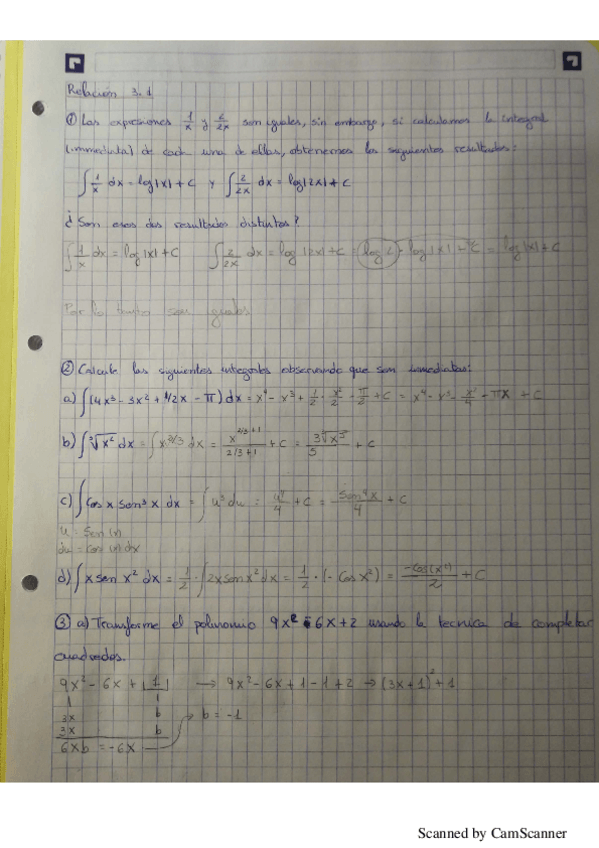 Relación 3.1
① Las expresiones 1/x y 2/2x son iguales, sin embargo, si calculamos la integral
(inmediata) de cada una de ellas, obtenemos los siguientes resultados:
∫ 1/x dx = log|x| + C y ∫ 2/2x dx = log|2x| + C
¿Son esos dos resultados distintos?
∫ 1/x dx = log|x| + C ∫ 2/2x dx = log|2x| + C = log 2 + log|x| + C = log|x| + C
Por lo tanto son iguales
② Calcule las siguientes integrales observando que son inmediatas:
a) ∫(4x³ - 3x² + 1/2x - π) dx = x⁴ - x³ + 1/2 · x²/2 - + C = x⁴ - x³ - πx + C
b) ∫ ∛x² dx = ∫ x^2/3 dx = x^(2/3+1) / (2/3+1) + C = + C
c) ∫ cos x sen³ x dx = ∫ u³ du = u⁴/4 + C = sen⁴x/4 + C
u = sen(x)
du = cos(x) dx
d) ∫ x sen x² dx = 1/2 · ∫ 2x sen x² dx = 1/2 · (- cos x²) = -cos(x²)/2 + C
③ a) Transforme el polinomio 9x² - 6x + 2 usando la tecnica de completar
cuadrados.
9x² - 6x + |1| → 9x² - 6x + 1 - 1 + 2 → (3x + 1)² + 1
3x b → b = -1
3x b
6xb = -6x
Scanned by CamScanner